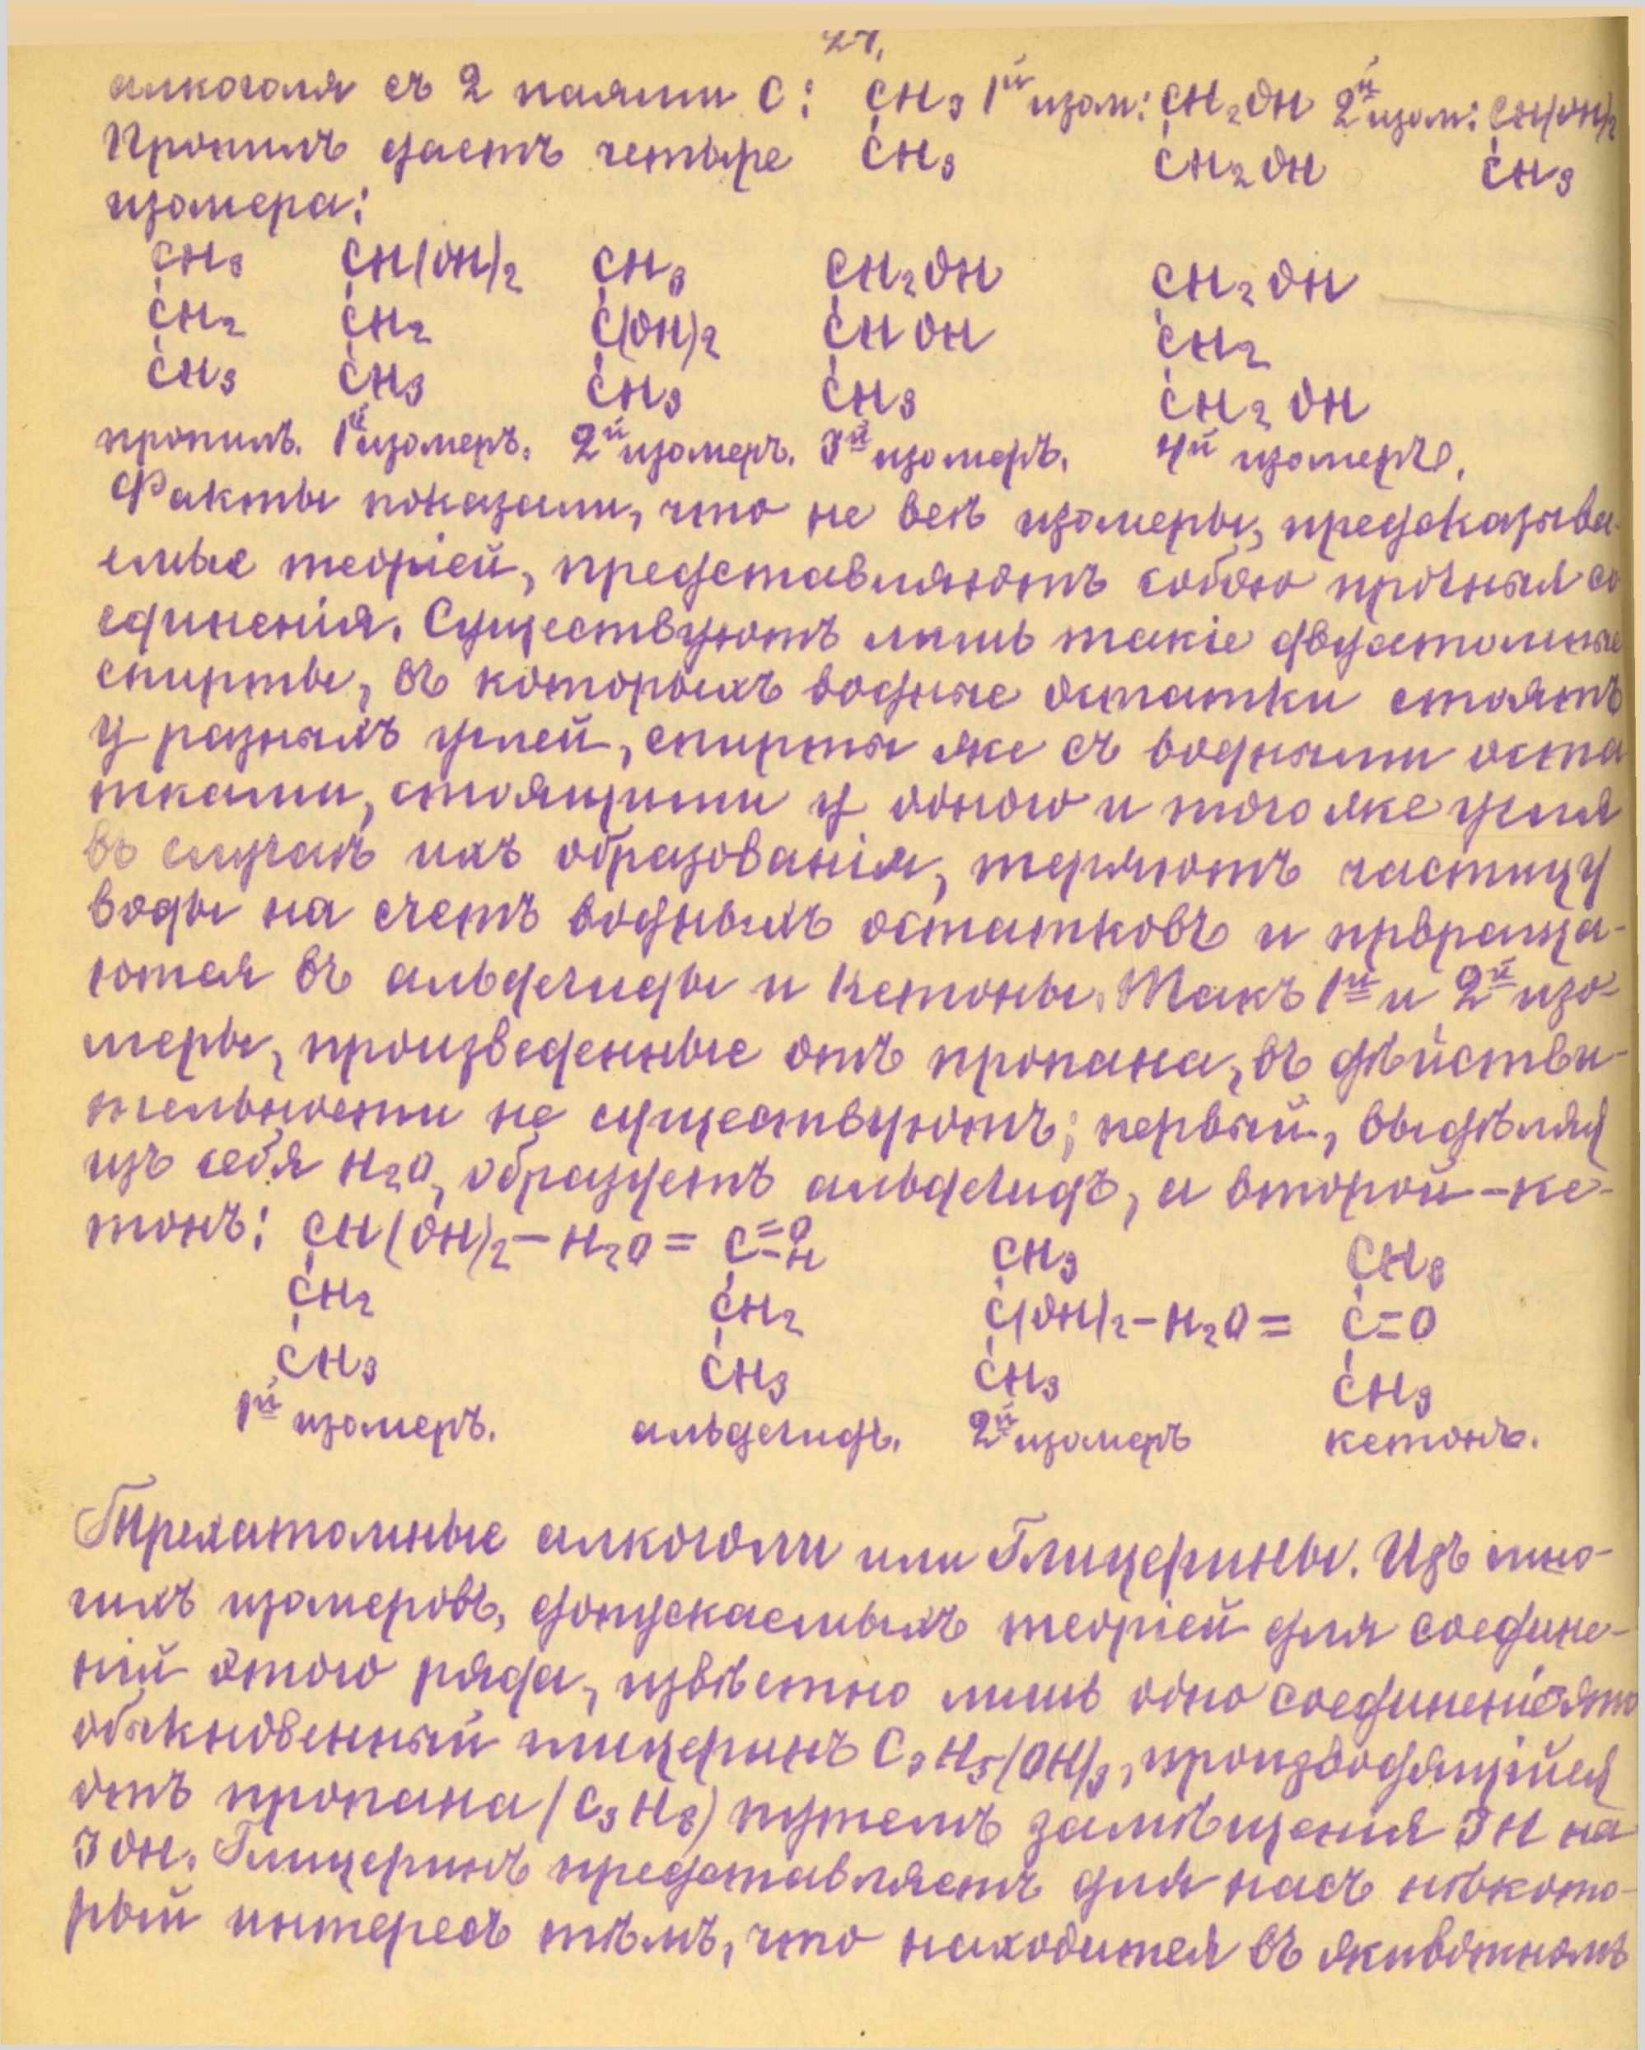 27.
алкоголя съ 2 паями С: CH₃ 1й изом: CH₂OH 2й изом: CH(OH)₂
Пропилъ даетъ четыре CH₃ CH₂OH CH₃
изомера:
CH₃ CH(OH)₂ CH₃ CH₂OH CH₂OH
CH₂ CH₂ C(OH)₂ CHOH CH₂
CH₃ CH₃ CH₃ CH₃ CH₂OH
пропилъ. 1й изомеръ. 2й изомеръ. 3й изомеръ. 4й изомеръ.
Факты показали, что не всѣ изомеры, предсказыва-
емые теоріей, представляютъ собою прочныя со
единенія. Существуютъ лишь такіе двуатомные
спирты, въ которыхъ водные остатки стоятъ
у разныхъ углей, спирты же съ водными оста
тками, стоящими у одного и того же угля
въ случаѣ ихъ образованія, теряютъ частицу
воды на счетъ водныхъ остатковъ и првраща-
ются въ альдегиды и кетоны. Такъ 1й и 2й изо-
меры, произведенные отъ пропана, въ дѣйстви-
тельности не существуютъ; первый, выдѣляя
изъ себя H₂O, образуетъ альдегидъ, а второй-ке-
тонъ: CH(OH)₂-H₂O= C=O-H CH₃ CH₃
CH₂ CH₂ C(OH)₂-H₂O= C=O
CH₃ CH₃ CH₃ CH₃
1й изомеръ. альдегидъ. 2й изомеръ кетонъ.
Трехатомные алкоголи или Глицерины. Изъ мно-
гихъ изомеровъ, допускаемыхъ теоріей для соедине-
ній этого ряда, извѣстно лишь одно соединеніе это
обыкновенный глицеринъ C₃H₅(OH)₃, производящійся
отъ пропана (C₃H₈) путемъ замѣщенія 3H на
3OH. Глицеринъ представляетъ для насъ нѣкото-
рый интересъ тѣмъ, что находится въ животномъ